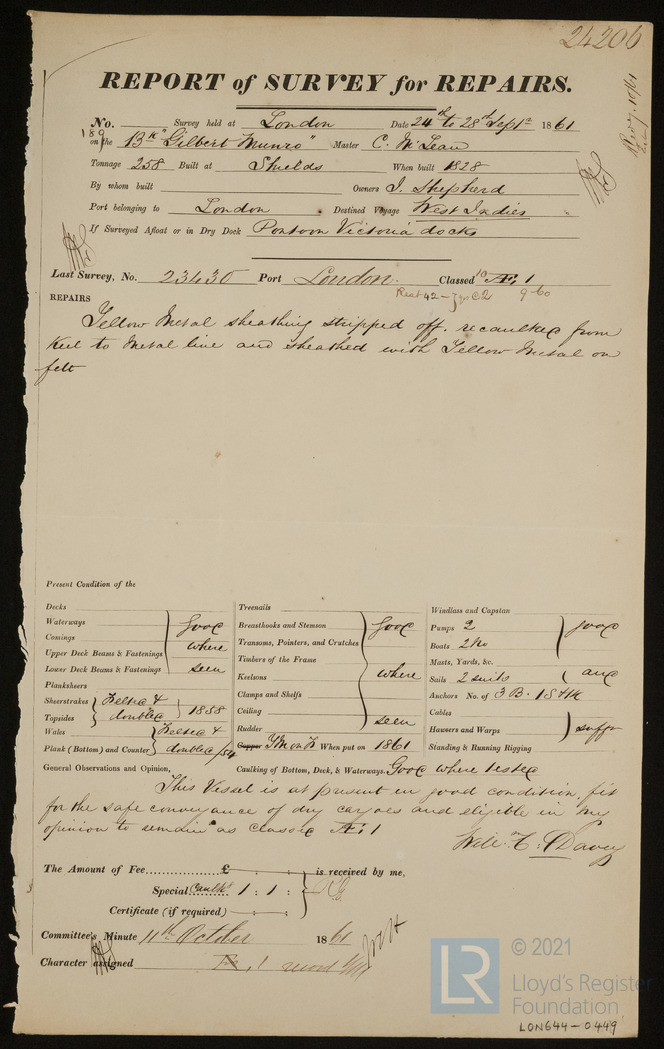 24206
REPORT of SURVEY for REPAIRS.
No. Survey held at London Date 24th to 28th Septr 1861
189
on the Bk "Gilbert Munro" Master C. McLean
Tonnage 258 Built at Shields When built 1828
By whom built Owners J. Shepherd
Port belonging to London Destined Voyage West Indies
If Surveyed Afloat or in Dry Dock Pontoon Victoria docks
Last Survey, No. 23430 Port London. Classed Æ 1
Rest 42 9-60
REPAIRS
Yellow Metal sheathing stripped off. recaulked from
Keel to Metal line and sheathed with Yellow Metal on
felt
Present Condition of the
Decks
Waterways
Comings
Upper Deck Beams & Fastenings
Lower Deck Beams & Fastenings
good
where
seen
Planksheers
Sheerstrakes
Topsides
Felted & doubled 1858
Wales
Plank (Bottom) and Counter
Felted & doubled /54
Treenails
Breasthooks and Stemson
Transoms, Pointers, and Crutches
Timbers of the Frame
Keelsons
Clamps and Shelfs
Ceiling
Rudder
good
where
seen
Copper YM on F When put on 1861
Windlass and Capstan
Pumps 2
Boats 2 No
Masts, Yards, &c.
Sails 2 suits
Anchors No. of 3 B. 1 S & 1 K
Cables
Hawsers and Warps
Standing & Running Rigging
good
and
suffr
General Observations and Opinion, Caulking of Bottom, Deck, & Waterways. Good where tested
This Vessel is at present in good condition, fit
for the safe conveyance of dry cargoes and eligible in my
opinion to remain as classed Æ 1
Will. H. Davey
The Amount of Fee £ is received by me,
Special Caulkg 1 : 1 :
Certificate (if required)
Committee's Minute 11th October 1861
Character assigned Æ 1
© 2021
LR
Lloyd's Register
Foundation
LON644-0449